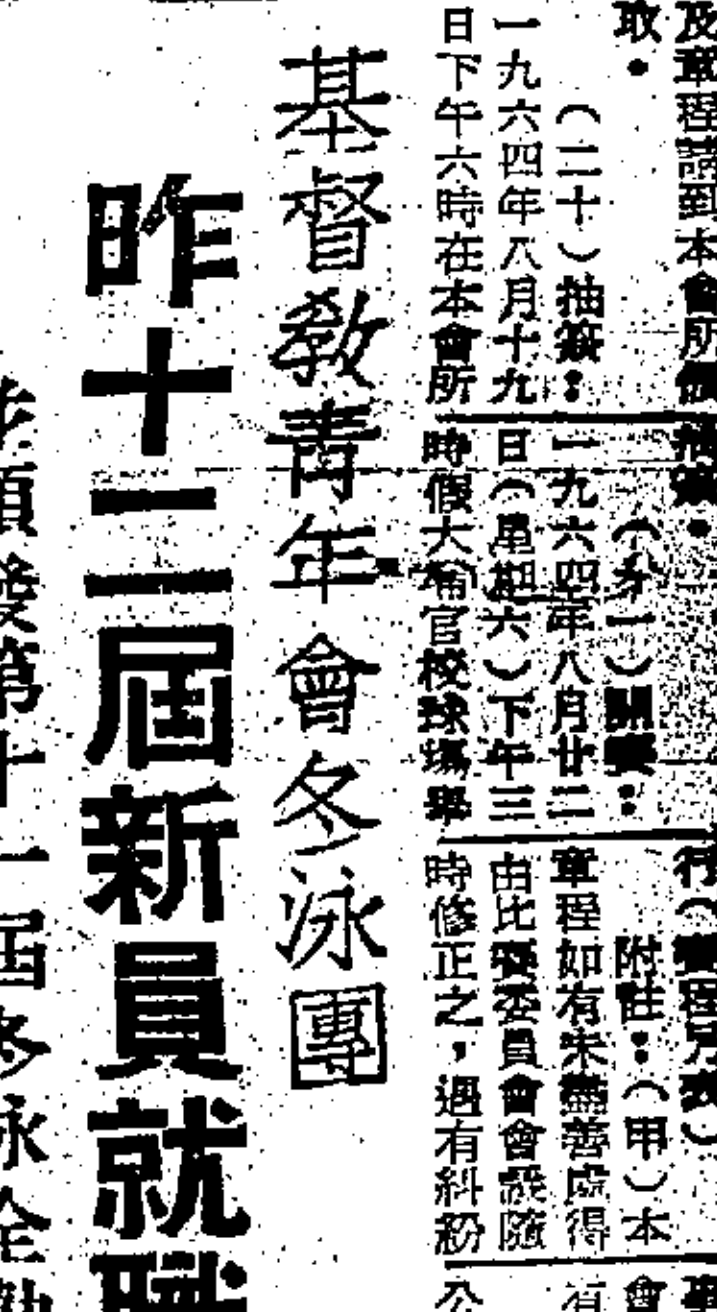 及章程請到本會所領
取。
（二十）抽籤：
一九六四年八月十九
日下午六時在本會所
抽籤。
（廿一）開賽：
一九六四年八月廿二
日（星期六）下午三
時假大埔官校球塲舉
行（賽程另表）
附註：（甲）本
章程如有未盡善處得
由比賽委員會會議隨
時修正之，遇有糾紛
會
公
基督教青年會冬泳團
昨十二屆新員就職
第十一屆冬泳全勤